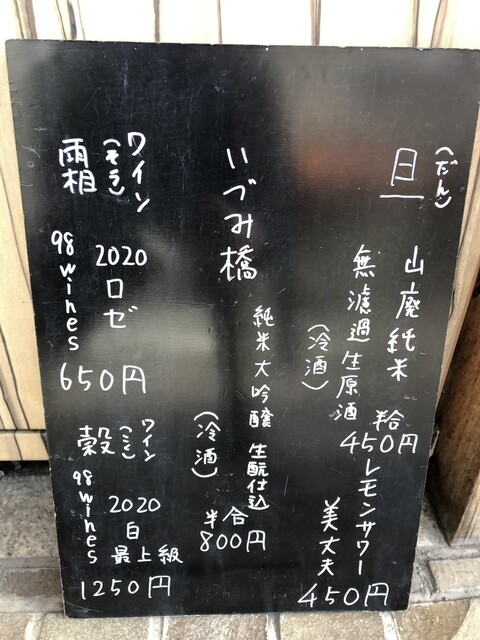 (だん)
旦
山廃純米
無濾過生原酒
(冷酒)
半合
450円
レモンサワー
美丈夫
450円
いづみ橋
純米大吟醸 生酛仕込
(冷酒)
半合
800円
ワイン
(そう)
霜
2020
ロゼ
98wines
650円
ワイン
(こく)
穀
2020
白
最上級
98wines
1250円